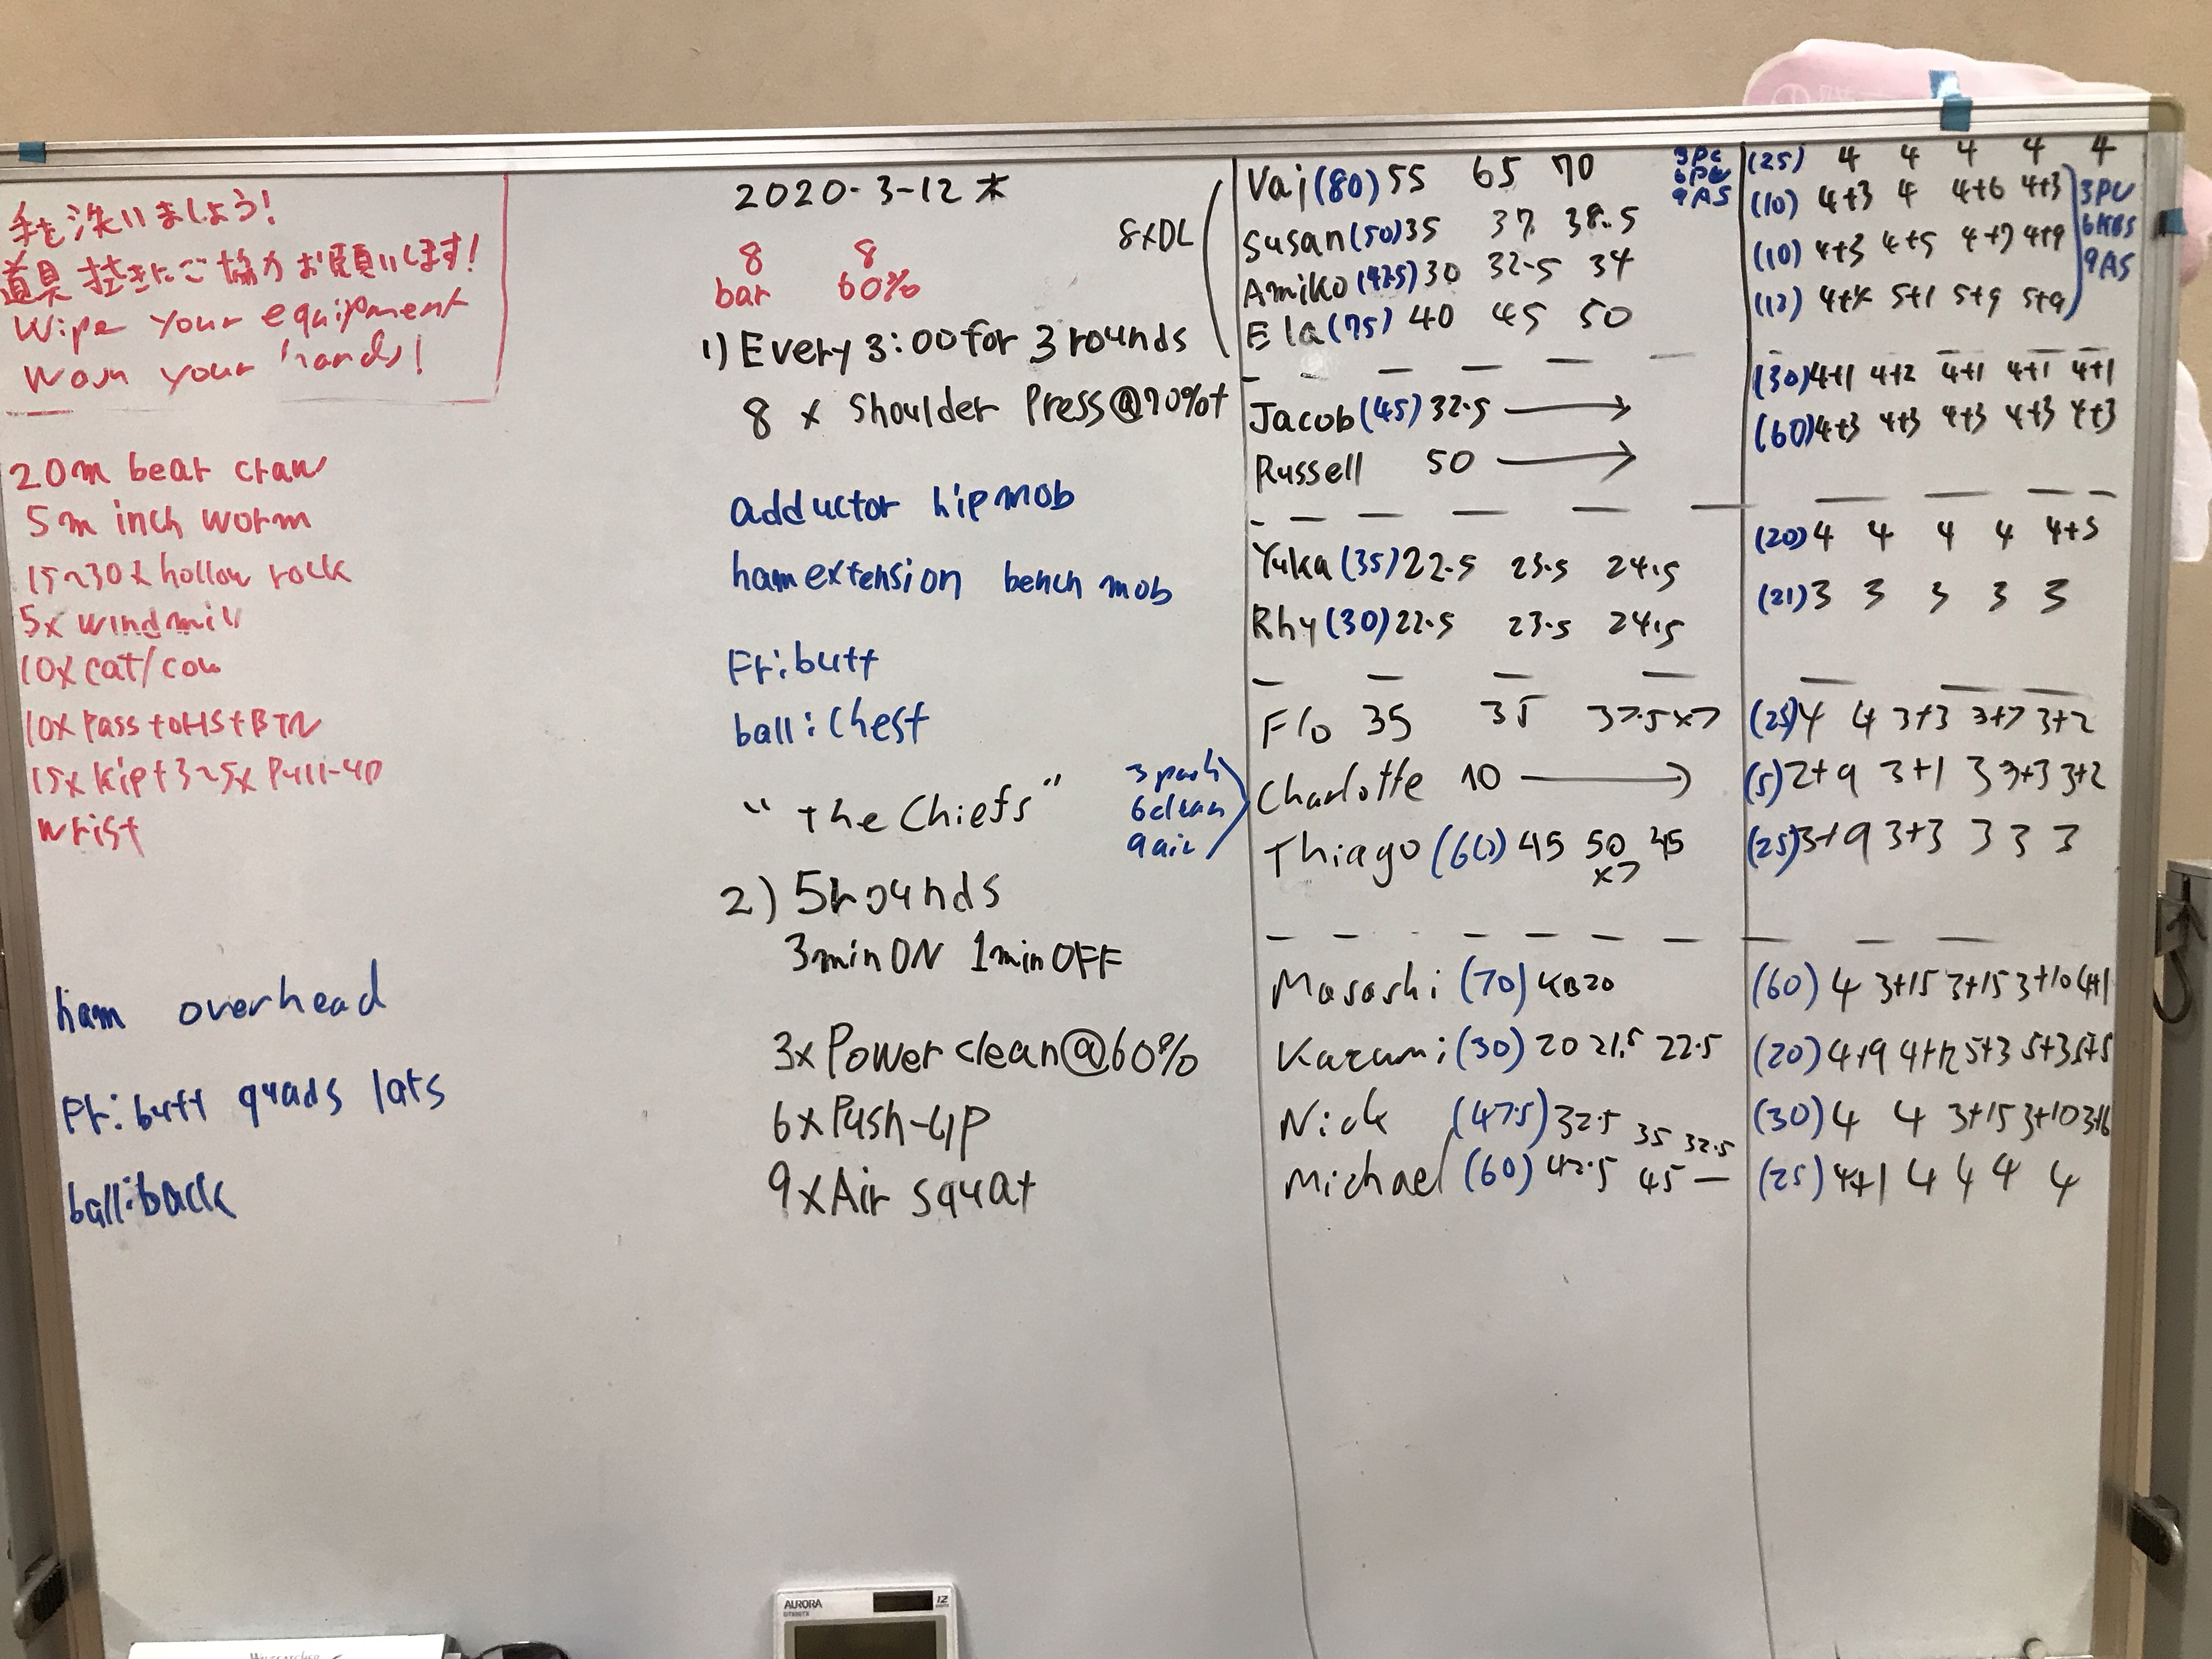 手を洗いましょう!
道具拭きにご協力お願いします!
Wipe your equipment
Wash your hands!
20m bear craw
5m inch worm
15~30x hollow rock
5x windmill
10x cat/cow
10x Pass+OHS+BTN
15x kip+3~5x Pull-up
wrist
ham overhead
Fr:butt quads lats
ball:back
2020-3-12 木
8 8
bar 60%
1) Every 3:00 for 3 rounds
8 x Shoulder Press@70%+
adductor hip mob
ham extension bench mob
Fr:butt
ball:chest
"the Chiefs"
2) 5rounds
3min ON 1min OFF
3x Power clean@60%
6x Push-up
9x Air squat
8xDL
Vaj (80) 55 65 70
Susan (50) 35 37 38.5
Amiko (42.5) 30 32.5 34
Ela (75) 40 45 50
Jacob (45) 32.5 →
Russell 50 →
Yuka (35) 22.5 23.5 24.5
Rhy (30) 22.5 23.5 24.5
Flo 35 35 37.5x7
3 push
6 clean
9 air
Charlotte 10 →
Thiago (60) 45 50 45
x7
Masashi (70) KB20
Kazumi (30) 20 21.5 22.5
Nick (47.5) 32.5 35 32.5
Michael (60) 42.5 45 —
3PC
6PU
9AS
(25) 4 4 4 4 4
(10) 4+3 4 4+6 4+3
(10) 4+3 4+5 4+7 4+9
5+1 5+9 5+9
3PU
6KBS
9AS
(30) 4+1 4+2 4+1 4+1 4+1
(60) 4+3 4+3 4+3 4+3 4+3
(20) 4 4 4 4 4+5
(21) 3 3 3 3 3
(25) 4 4 3+3 3+7 3+2
(5) 2+9 3+1 3 3+3 3+2
(25) 3+9 3+3 3 3 3
(60) 4 3+15 3+15 3+10 4+1
(20) 4+9 4+12 5+3 5+3 5+5
(30) 4 4 3+15 3+10 3+16
(25) 4+1 4 4 4 4
AURORA
12